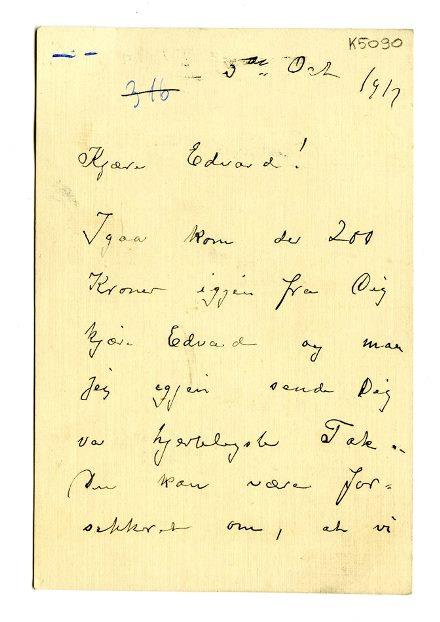 K5090
3die Oct 1917
316
Kjære Edvard!
Igaa kom der 200
Kroner igjen fra Dig
kjære Edvard og maa
jeg igjen sende Dig
vor hjerteligste Tak.
Du kan være for=
sikkret om, at vi